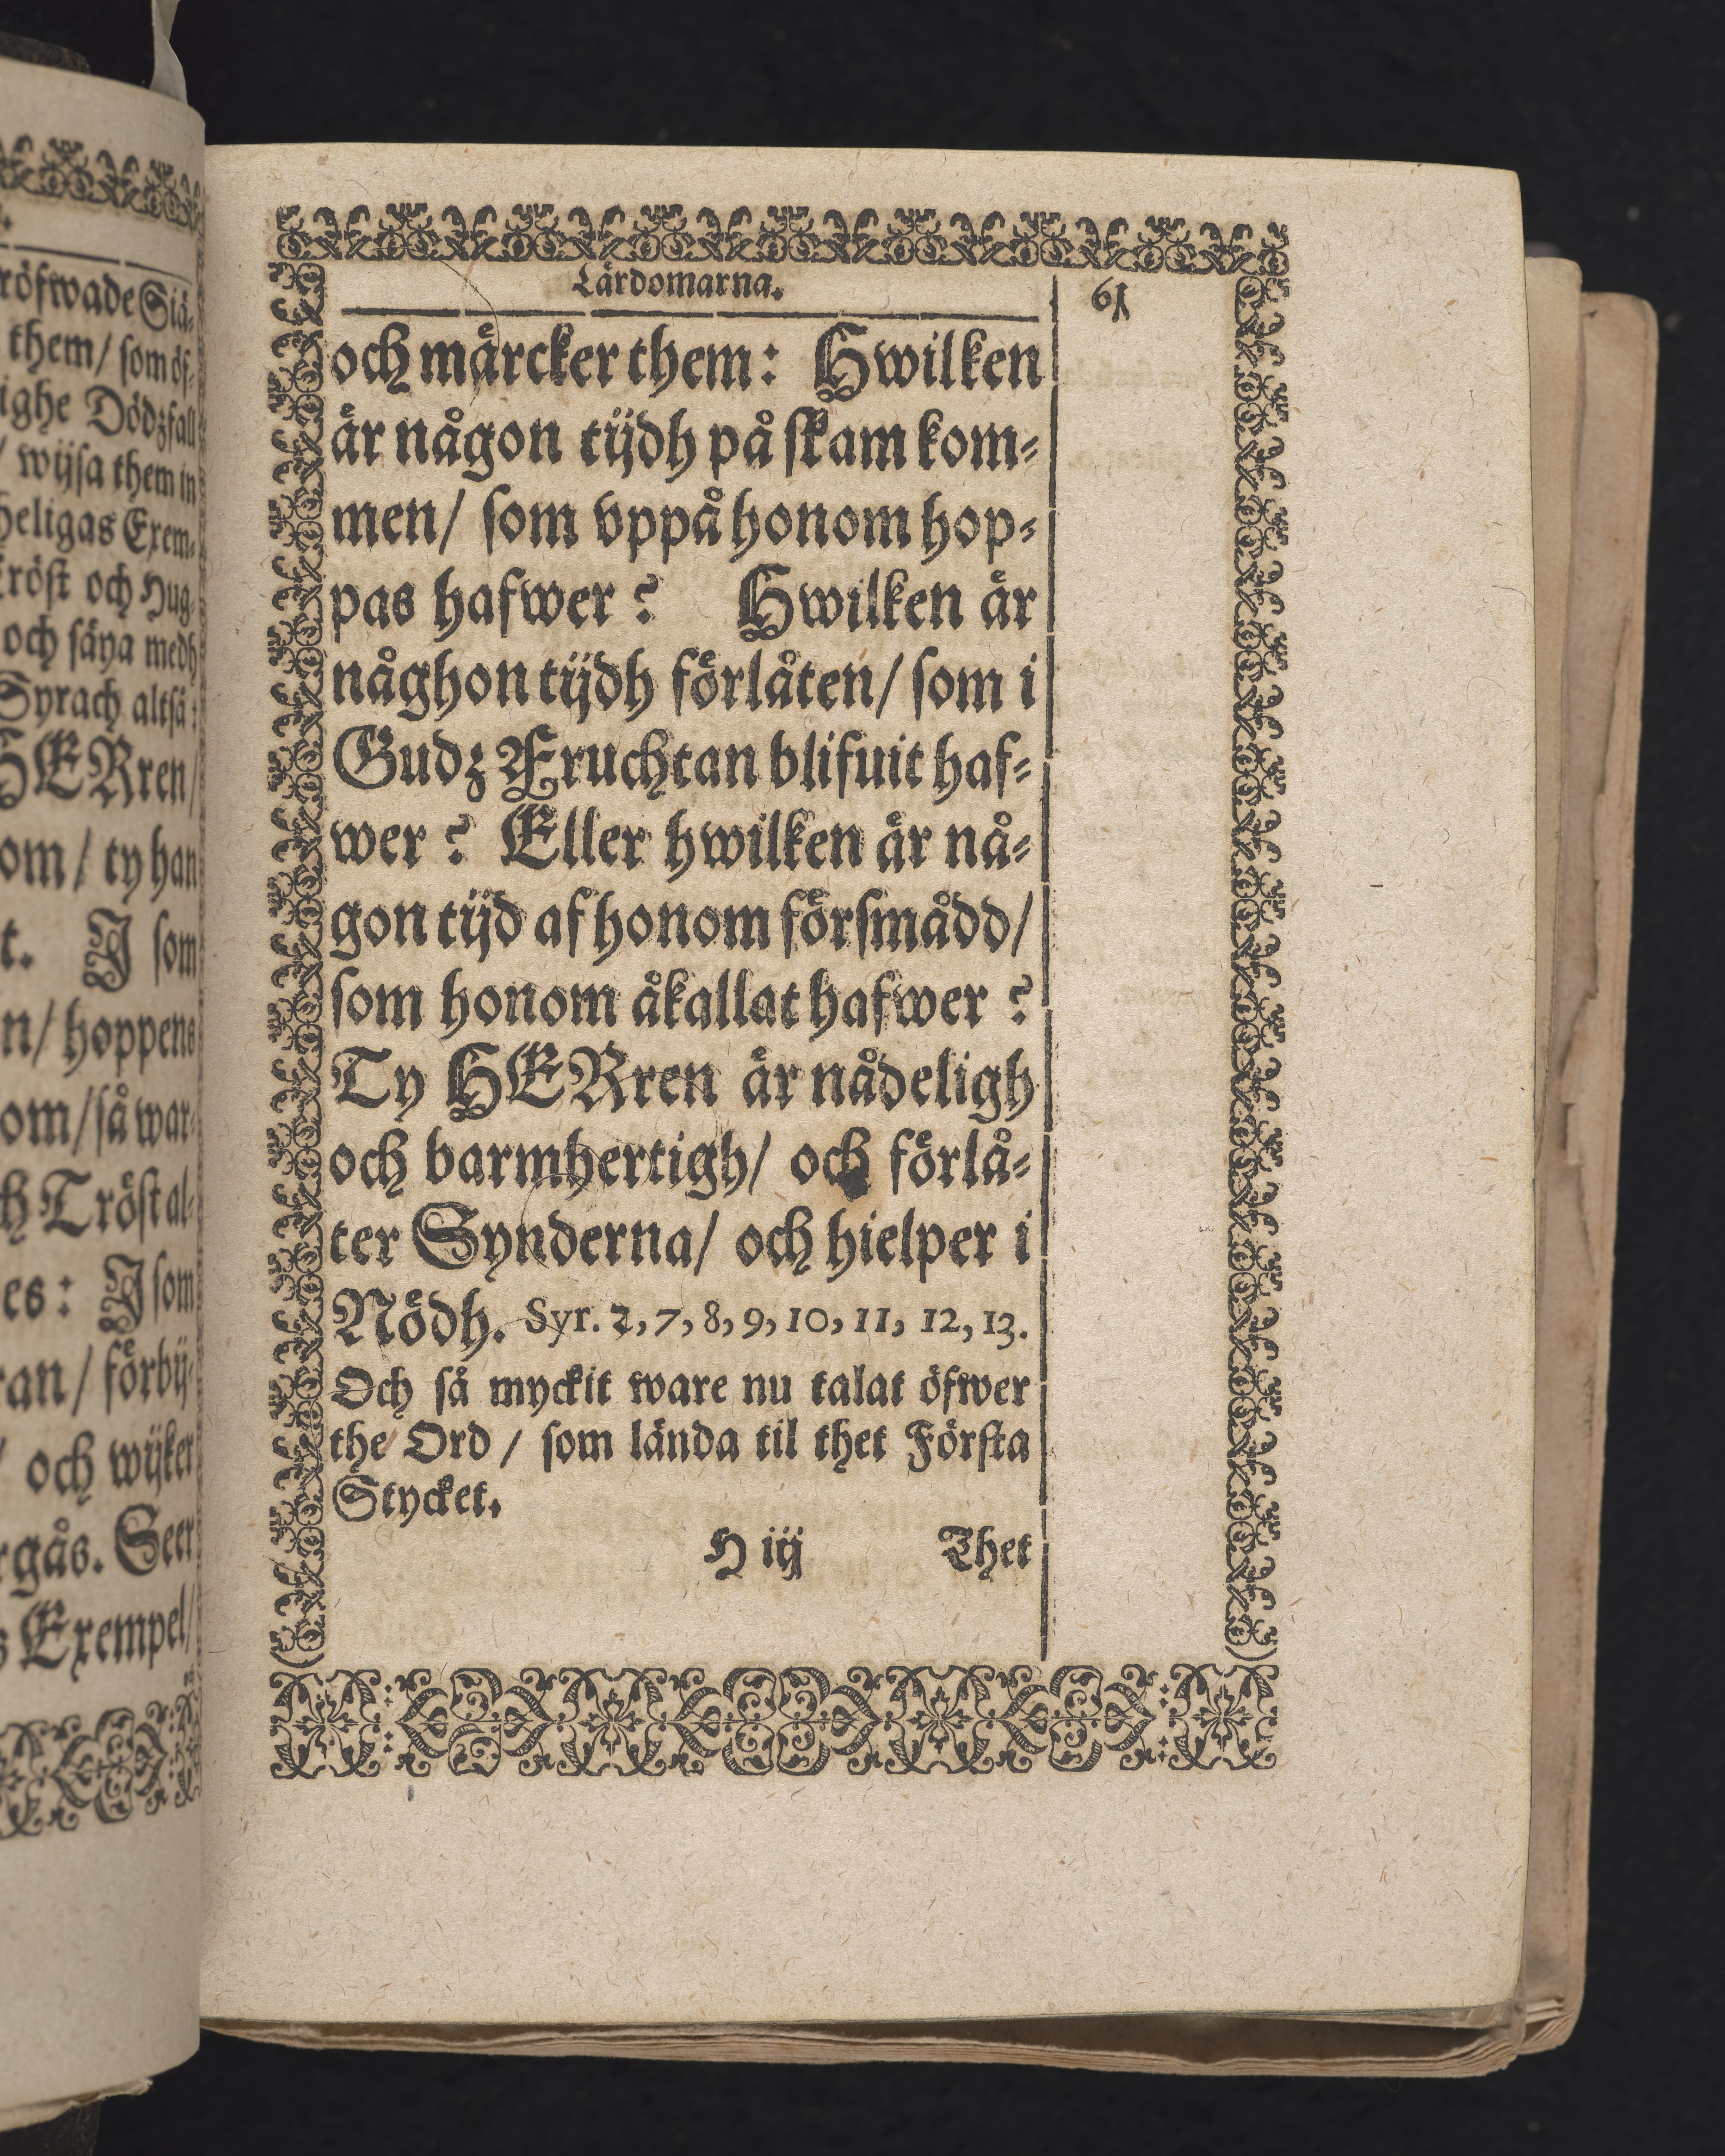 röfwade Siä-
them/ som öf-
ighe Dödzfall
/ wijsa them in
heligas Exem-
röst och Hug-
och säya medh
Syrach altså:
HERren/
om/ ty han
t. J som
n/ hoppens
om/ så war-
h Tröst al-
es: J som
an/ förbij-
/ och wijker
rgås. Seer
s Exempel/
Lärdomarna.
61
och märcker them: Hwilken
är någon tijdh på skam kom-
men/ som vppå honom hop-
pas hafwer? Hwilken är
någhon tijdh förlåten/ som i
Gudz Fruchtan blifuit haf-
wer? Eller hwilken är nå-
gon tijd af honom försmådd/
som honom åkallat hafwer?
Ty HERren är nådeligh
och barmhertigh/ och förlå-
ter Synderna/ och hielper i
Nödh. Syr. 2, 7, 8, 9, 10, 11, 12, 13.
Och så myckit ware nu talat öfwer
the Ord/ som lända til thet Första
Stycket.
H iij Thet